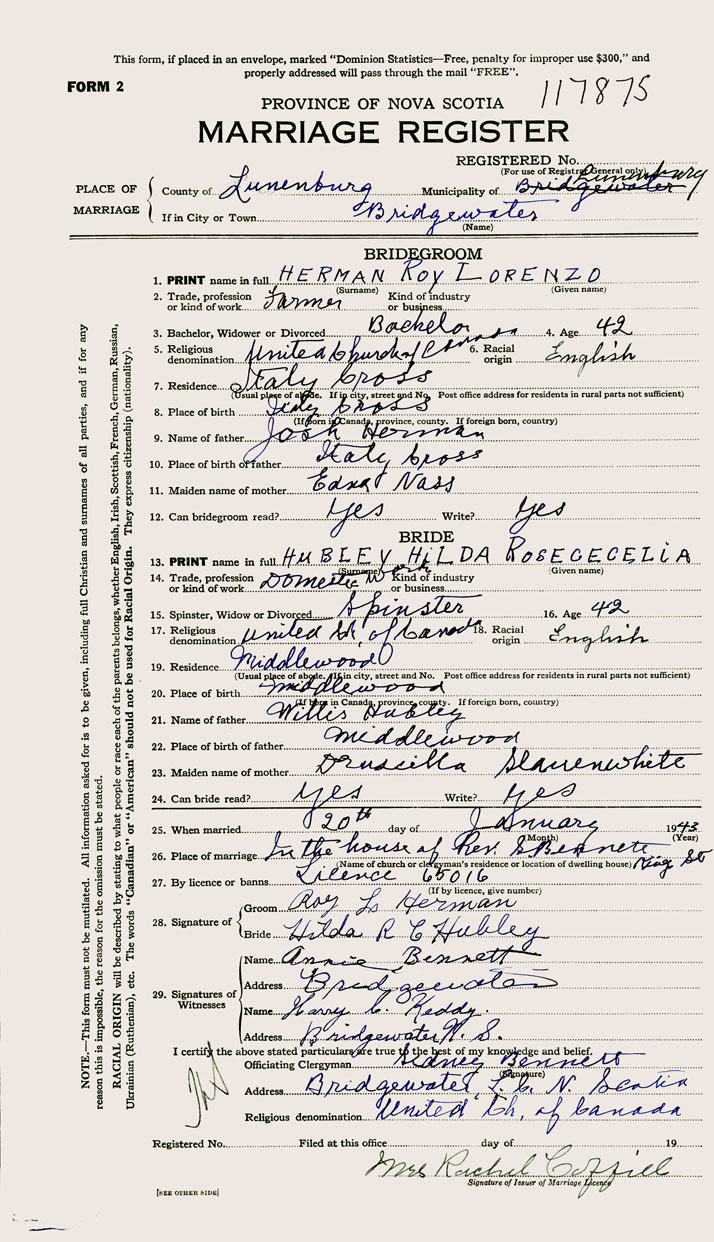 This form, if placed in an envelope, marked "Dominion Statistics—Free, penalty for improper use $300," and
properly addressed will pass through the mail "FREE".
FORM 2
117875
PROVINCE OF NOVA SCOTIA
MARRIAGE REGISTER
REGISTERED No.
(For use of Registrar General only)
PLACE OF MARRIAGE
County of Lunenburg Municipality of Bridgewater Lunenburg
If in City or Town Bridgewater
(Name)
BRIDEGROOM
1. PRINT name in full HERMAN ROY LORENZO
(Surname) (Given name)
2. Trade, profession or kind of work Farmer Kind of industry or business
3. Bachelor, Widower or Divorced Bachelor 4. Age 42
5. Religious denomination United Church of Canada 6. Racial origin English
7. Residence Italy Cross
(Usual place of abode. If in city, street and No. Post office address for residents in rural parts not sufficient)
8. Place of birth Italy Cross
(If born in Canada, province, county. If foreign born, country)
9. Name of father Josh Herman
10. Place of birth of father Italy Cross
11. Maiden name of mother Edna Nass
12. Can bridegroom read? Yes Write? Yes
BRIDE
13. PRINT name in full HUBLEY HILDA ROSECECELIA
(Surname) (Given name)
14. Trade, profession or kind of work Domestic Work Kind of industry or business
15. Spinster, Widow or Divorced Spinster 16. Age 42
17. Religious denomination United Ch. of Canada 18. Racial origin English
19. Residence Middlewood
(Usual place of abode. If in city, street and No. Post office address for residents in rural parts not sufficient)
20. Place of birth Middlewood
(If born in Canada, province, county. If foreign born, country)
21. Name of father Willis Hubley
22. Place of birth of father Middlewood
23. Maiden name of mother Druscilla Slauenwhite
24. Can bride read? Yes Write? Yes
25. When married 20th day of January 1943
(Month) (Year)
26. Place of marriage In the house of Rev. S Bennett King St
(Name of church or clergyman's residence or location of dwelling house)
27. By licence or banns Licence 65016
(If by licence, give number)
28. Signature of
Groom Roy L. Herman
Bride Hilda R C Hubley
29. Signatures of Witnesses
Name Annie Bennett
Address Bridgewater
Name Harry C. Keddy.
Address Bridgewater N. S.
I certify the above stated particulars are true to the best of my knowledge and belief.
Officiating Clergyman Sidney Bennett
(Signature)
Address Bridgewater, L. Co. N. Scotia
Religious denomination United Ch. of Canada
Registered No. Filed at this office day of 19
Mrs Rachel
Signature of Issuer of Marriage Licence
[SEE OTHER SIDE]
NOTE.—This form must not be mutilated. All information asked for is to be given, including full Christian and surnames of all parties, and if for any
reason this is impossible, the reason for the omission must be stated.
RACIAL ORIGIN will be described by stating to what people or race each of the parents belongs, whether English, Irish, Scottish, French, German, Russian,
Ukrainian (Ruthenian), etc. The words "Canadian" or "American" should not be used for Racial Origin. They express citizenship (nationality).